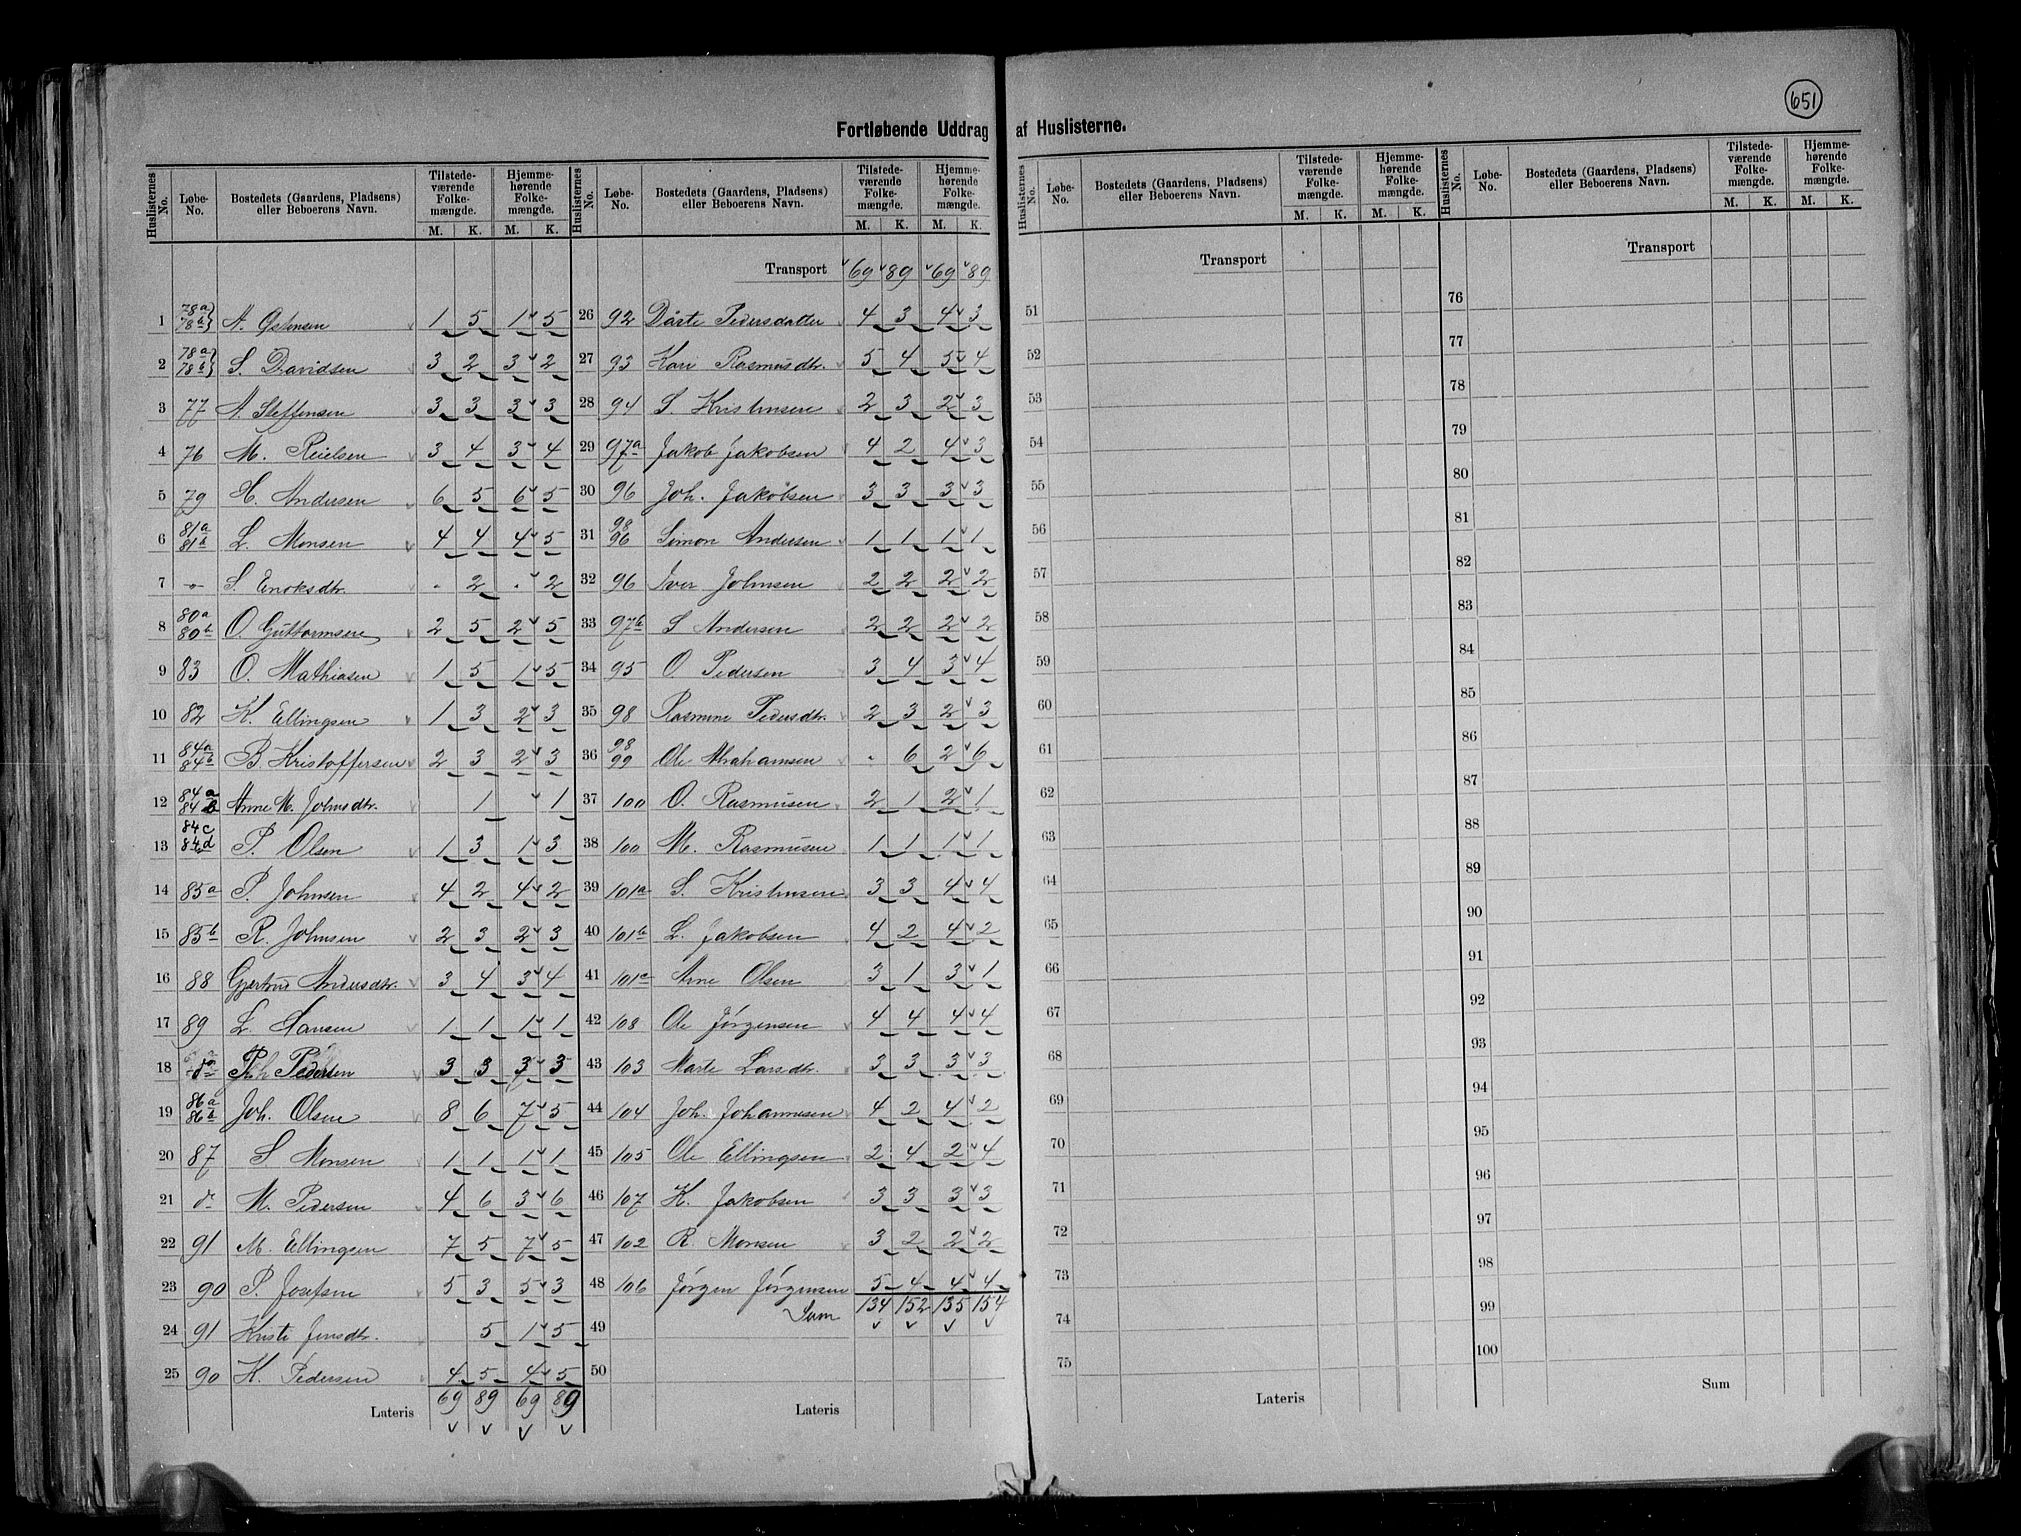 651
Fortløbende Uddrag af Huslisterne.
Huslisternes No. Løbe-No. Bostedets (Gaardens, Pladsens) eller Beboerens Navn. Tilstede-værende Folke-mængde. M. K. Hjemme-hørende Folke-mængde. M. K.
1 78a 78b} A. Ostensen 1 5 1 5
2 78a 78b} S. Davidsen 3 2 3 2
3 77 A. Steffensen 3 3 3 3
4 76 M. Reielsen 3 4 3 4
5 79 H. Andersen 6 5 6 5
6 81a 81b L. Monsen 4 4 4 5
7 -"- S. Enoksdtr. - 2 - 2
8 80a 80b O. Guttormsen 2 5 2 5
9 83 O. Mathiasen 1 5 1 5
10 82 K. Ellingsen 1 3 2 3
11 84a 84b B. Kristoffersen 2 3 2 3
12 84a 84b Anne M. Johnsdtr. 1 1
13 84c 84d P. Olsen 1 3 1 3
14 85a P. Johnsen 4 2 4 2
15 85b R. Johnsen 2 3 2 3
16 88 Gjertrud Andersdtr. 3 4 3 4
17 89 L. Hansen 1 1 1 1
18 do Pedersen 3 3 3 3
19 86a 86b Joh. Olsen 8 6 7 5
20 87 S Monsen 1 1 1 1
21 do M. Pedersen 4 6 3 6
22 91 M. Ellingsen 7 5 7 5
23 90 P. Josefsen 5 3 5 3
24 91 Kirsti Jensdtr. 5 1 5
25 90 K. Pedersen 4 5 4 5
Lateris 69 89 69 89
Huslisternes No. Løbe-No. Bostedets (Gaardens, Pladsens) eller Beboerens Navn. Tilstede-værende Folke-mængde. M. K. Hjemme-hørende Folke-mængde. M. K.
Transport 69 89 69 89
26 92 Dårte Pedersdatter 4 3 4 3
27 93 Kari Rasmusdtr. 5 4 5 4
28 94 S. Kristensen 2 3 2 3
29 97a Jakob Jakobsen 4 2 4 3
30 96 Joh. Jakobsen 3 3 3 3
31 98 96 Simon Andersen 1 1 1 1
32 96 Iver Johnsen 2 2 2 2
33 97b S Andersen 2 2 2 2
34 95 O. Pedersen 3 4 3 4
35 98 Rasmine Pedersdtr. 2 3 2 3
36 98 99 Ole Abrahamsen - 6 2 6
37 100 O. Rasmusen 2 1 2 1
38 100 M. Rasmusen 1 1 1 1
39 101a S. Kristensen 3 3 4 4
40 101b L. Jakobsen 4 2 4 2
41 101c Arne Olsen 3 1 3 1
42 108 Ole Jørgensen 4 4 4 4
43 103 Marte Larsdtr. 3 3 3 3
44 104 Joh. Johannesen 4 2 4 2
45 105 Ole Ellingsen 2 4 2 4
46 107 K. Jakobsen 3 3 3 3
47 102 R. Monsen 3 2 2 2
48 106 Jørgen Jørgensen 5 4 4 4
49 Sum 134 152 135 154
50
Lateris
Huslisternes No. Løbe-No. Bostedets (Gaardens, Pladsens) eller Beboerens Navn. Tilstede-værende Folke-mængde. M. K. Hjemme-hørende Folke-mængde. M. K.
Transport
51
52
53
54
55
56
57
58
59
60
61
62
63
64
65
66
67
68
69
70
71
72
73
74
75
Lateris
Huslisternes No. Løbe-No. Bostedets (Gaardens, Pladsens) eller Beboerens Navn. Tilstede-værende Folke-mængde. M. K. Hjemme-hørende Folke-mængde. M. K.
Transport
76
77
78
79
80
81
82
83
84
85
86
87
88
89
90
91
92
93
94
95
96
97
98
99
100
Sum